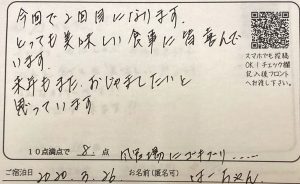 今回で2回目になります.
とっても美味しい食事に皆喜んで
います.
来年もまた、おじゃましたいと
思っています.
スマホでも投稿
OK！チェック欄
記入後フロント
へお渡し下さい。
10点満点で 8. 点
風呂場にゴキブリ......
ご宿泊日 2020.3.26 お名前(匿名可) はーちゃん